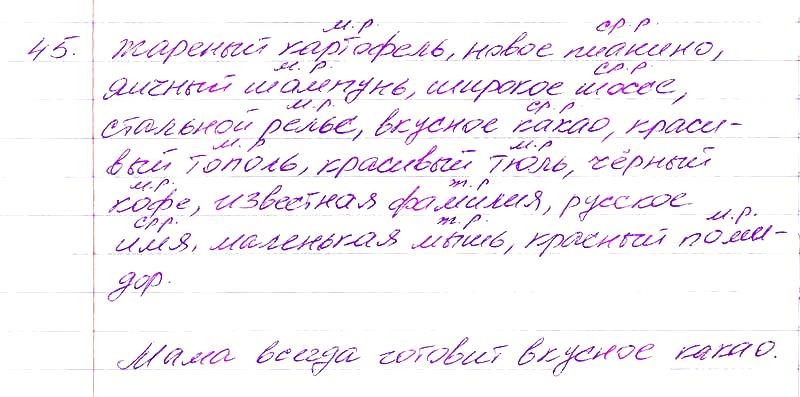 м.р. ср.р.
45. жареный картофель, новое пианино,
м.р. ср.р.
яичный шампунь, широкое шоссе,
м.р. ср.р.
стальной рельс, вкусное какао, краси-
м.р м.р.
вый тополь, красивый тюль, чёрный
м.р. ж.р.
кофе, известная фамилия, русское
ср.р. ж.р. м.р.
имя, маленькая мышь, красный поми-
дор.
Мама всегда готовит вкусное какао.